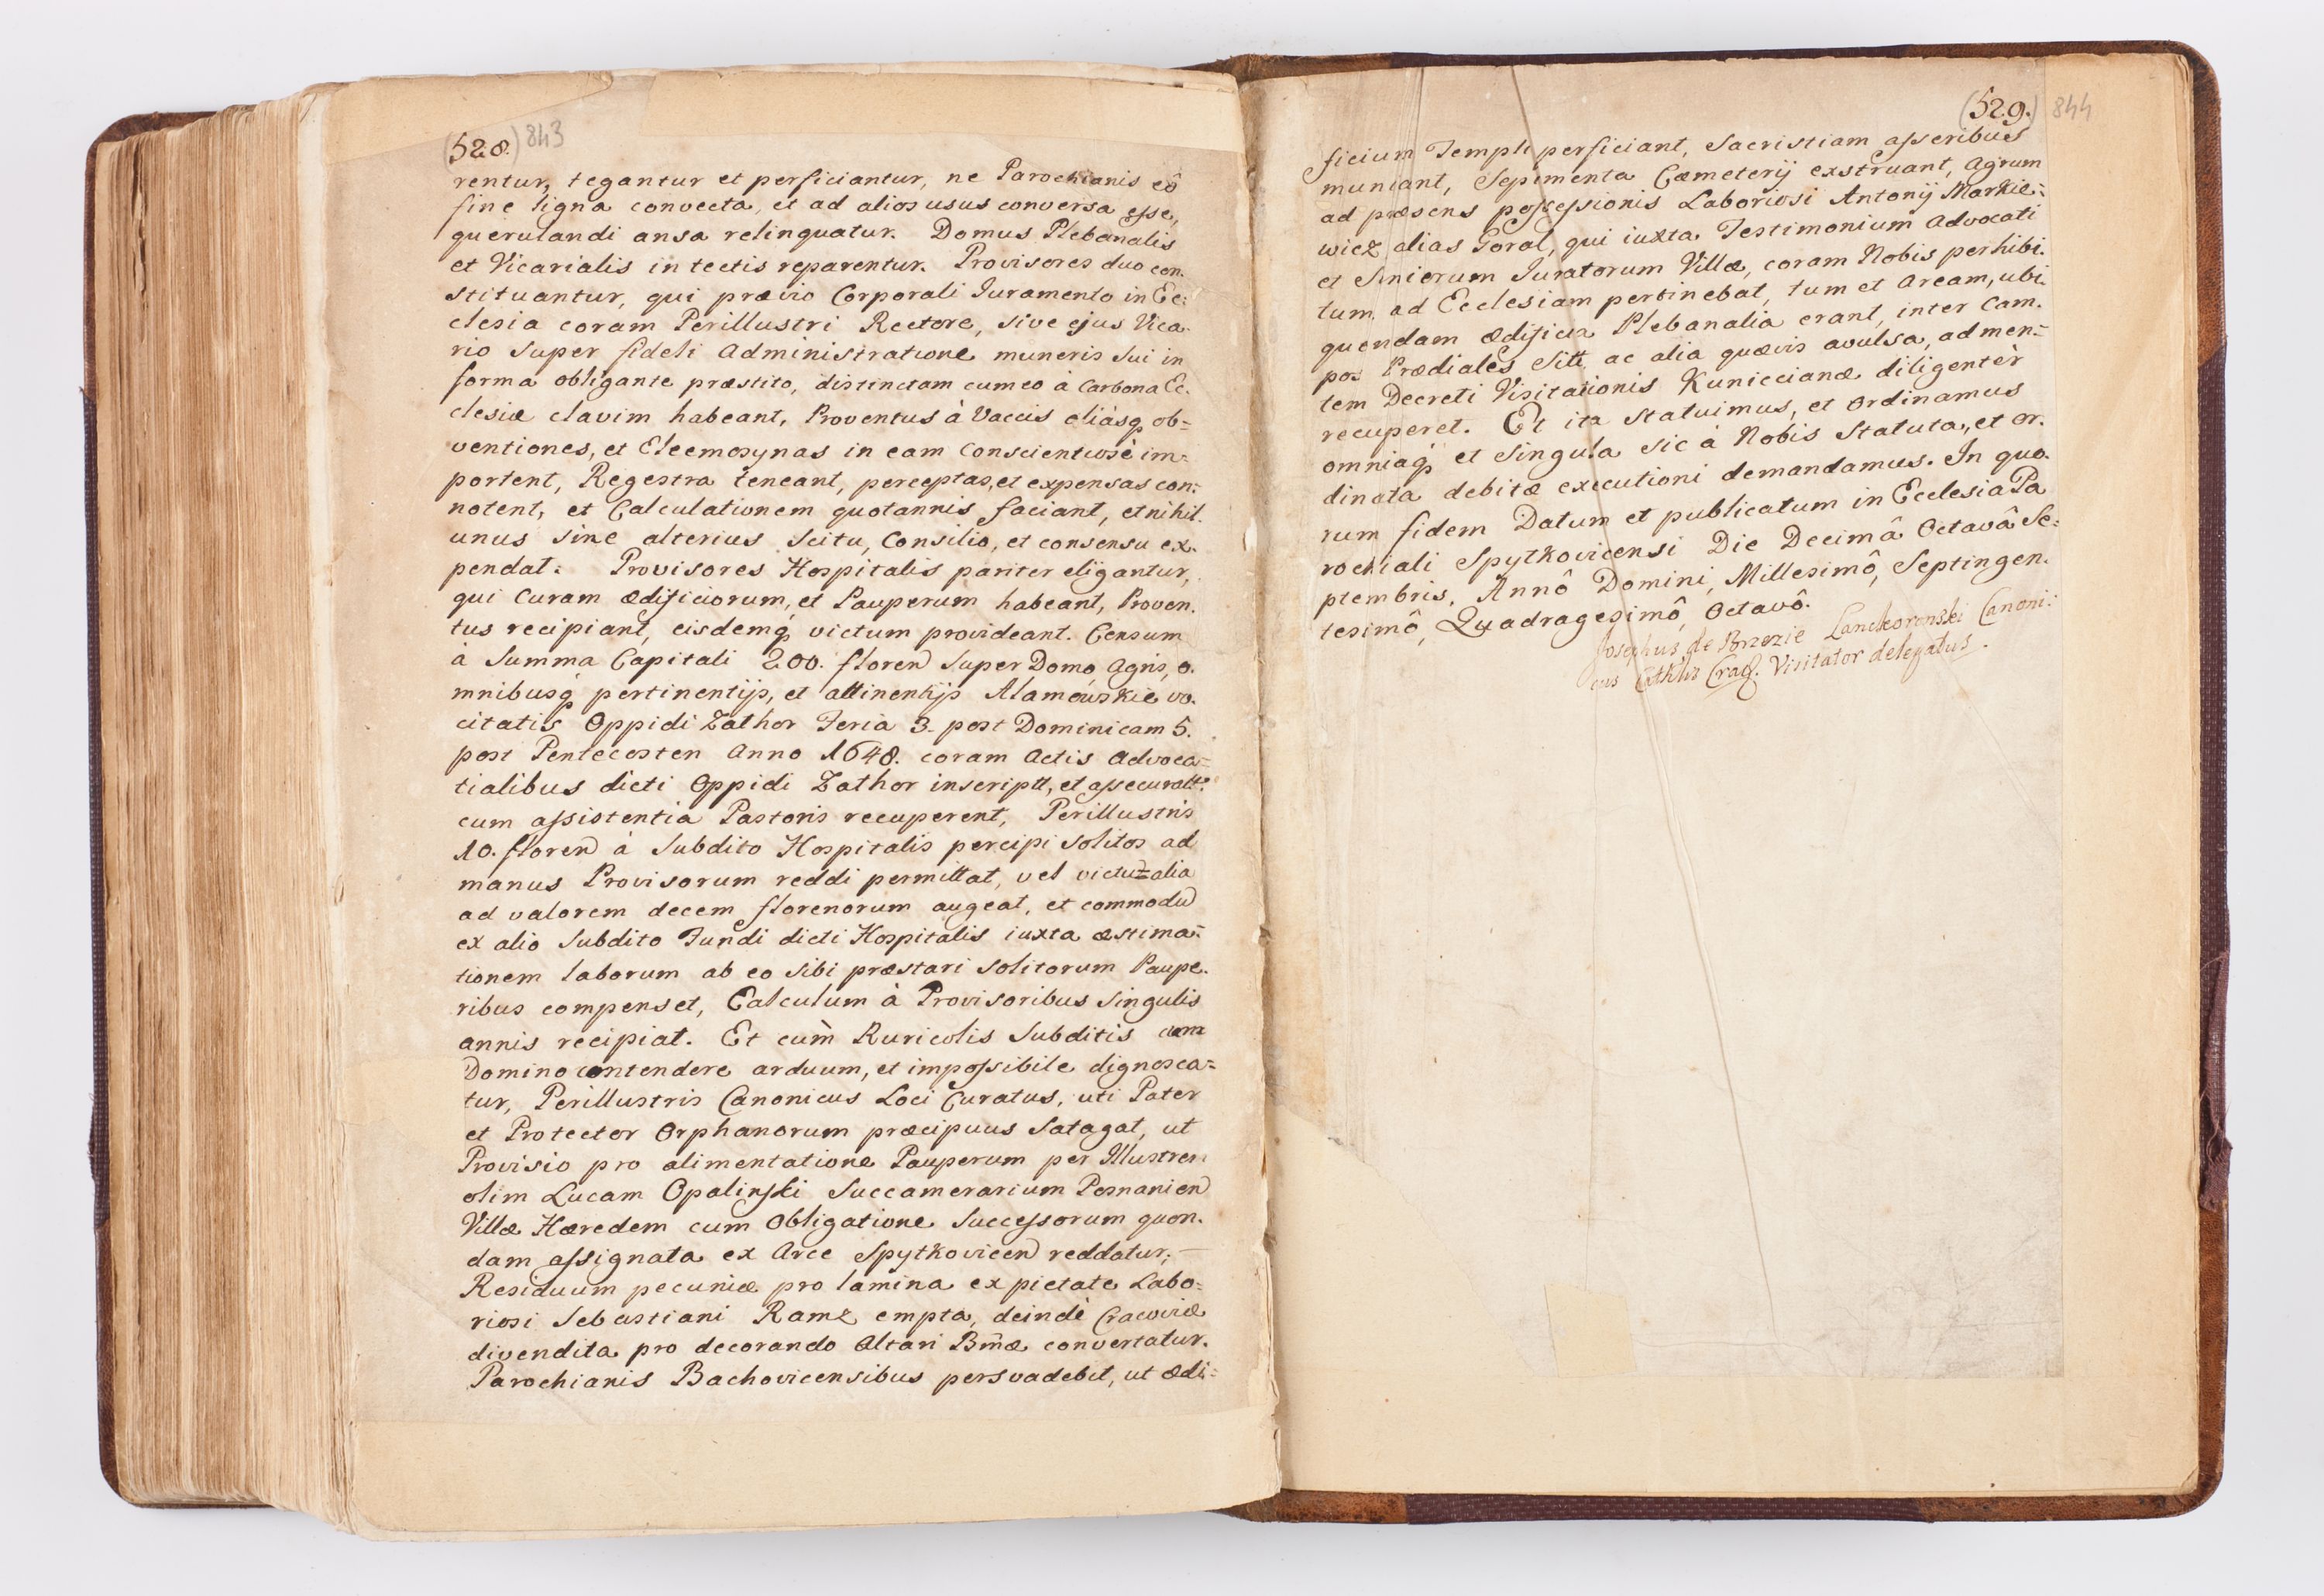 (528.) 843
rentur, tegantur et perficiantur, ne Parochianis eô
fine ligna convecta, et ad alios usus conversa esse,
querulandi ansa relinquatur. Domus Plebanalis
et Vicarialis in tectis reparentur. Provisores duo con-
stituantur, qui prævio Corporali Juramento in Ec:
clesia coram Perillustri Rectore, sive ejus Vica-
rio super fideli Administratione muneris sui in
forma obligante præstito, distinctam cum eo à Carbona Ec-
clesiæ clavim habeant, Proventus à Vaccis aliásq ob=
ventiones, et Eleemosynas in eam Conscientiosè im=
portent, Regestra teneant, perceptas, et expensas con=
notent, et Calculationem quotannis faciant, et nihil
unus sine alterius scitu, Consilio, et consensu ex-
pendat. Provisores Hospitalis pariter eligantur,
qui Curam ædificiorum, et Pauperum habeant, Proven-
tus recipiant, eisdemq victum provideant. Censum
à Summa Capitali 200. floren super Domo, Agris, o-
mnibusq pertinentijs, et attinentijs Adamowskie vo-
citatis Oppidi Zathor Feria 3. post Dominicam 5.
post Pentecosten Anno 1648. coram Actis Advoca=
tialibus dicti Oppidi Zathor inscriptt, et assecuratt.
cum assistentia Pastoris recuperent, Perillustris
10. floren à Subdito Hospitalis percipi solitos ad
manus Provisorum reddi permittat, vel victu=alia
ad valorem decem florenorum augeat, et commodu
ex alio Subdito Fundi dicti Hospitalis iuxta æstima=
tionem laborum ab eo sibi præstari solitorum Paupe-
ribus compenset, Calculum à Provisoribus singulis
annis recipiat. Et cum Ruricolis Subditis cum
Domino contendere arduum, et impossibile dignosca=
tur, Perillustris Canonicus Loci Curatus, uti Pater
et Protector Orphanorum præcipuus satagat, ut
Provisio pro alimentatione Pauperum per Illustrem
olim Lucam Opalinski Succamerarium Posnanien
Villæ Hæredem cum Obligatione Successorum quon-
dam assignata ex Arce Spytkovicen reddatur;
Residuum pecuniæ pro lamina ex pietate Labo=
riosi Sebastiani Ramz empta, deindè Cracoviæ
divendita pro decorando Altari Bmæ convertatur.
Parochianis Bachovicensibus persvadebit, ut ædi=
(529.) 844
ficium Templi perficiant, Sacristiam asseribus
muniant, Sepimenta Cæmeterij exstruant, Agrum
ad præsens possessionis Laboriosi Antonij Markie=
wicz alias Goral, qui iuxta Testimonium Advocati
et Seniorum Juratorum Villæ, coram Nobis perhibi-
tum, ad Ecclesiam pertinebat, tum et Aream, ubi
quondam ædificia Plebanalia erant, inter Cam-
pos Prædiales sitt ac alia quævis avulsa, ad men=
tem Decreti Visitationis Kuniccianæ diligentèr
recuperet. Et ita statuimus, et Ordinamus
omniaq et singula sic à Nobis statuta, et or-
dinata debitæ executioni demandamus. In quo-
rum fidem Datum et publicatum in Ecclesia Pa
rochiali Spytkovicensi Die Decimâ Octavâ Se-
ptembris, Annô Domini, Millesimô, Septingen-
tesimô, Quadragesimô, Octavô.
Josephus de Brzezie Lanckoronski Canoni:
cus Cathlis Crac. Visitator delegatus.